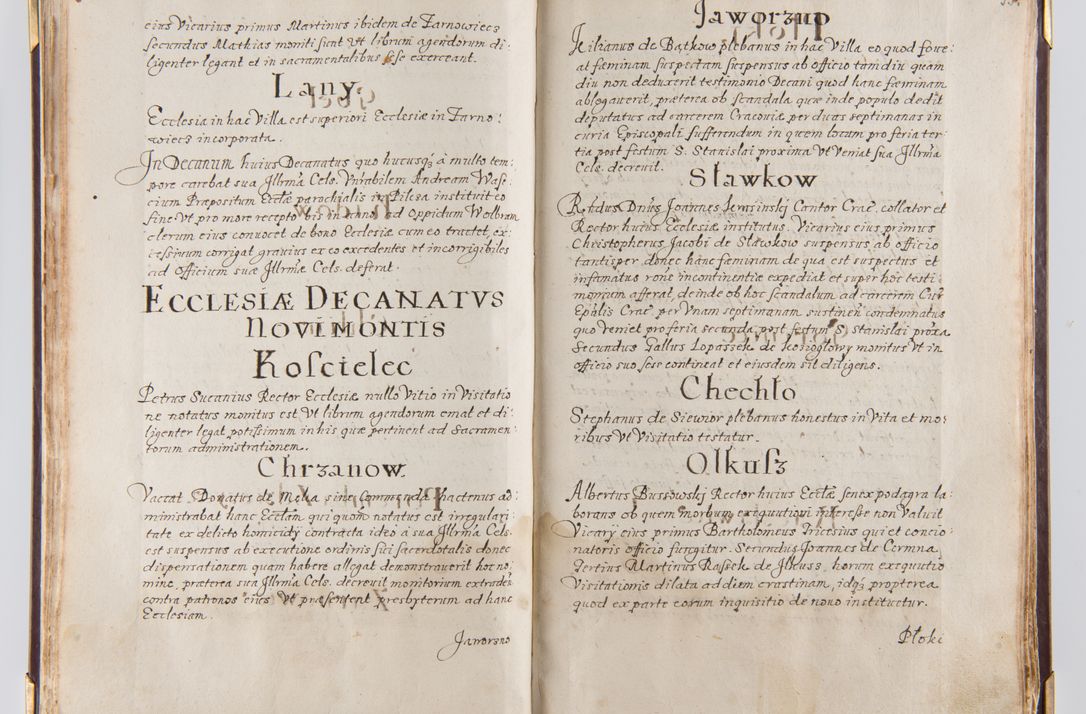 eius Vicarius primus Martinus ibidem de Tarnowiecz
secundus Mathias moniti sunt Vt librum agendorum di:
ligenter legant et in sacramentalibus sese exerceant.
Lany.
Ecclesia in hac Villa est superiori Ecclesiæ in Tarno:
wiecz incorporata.
In Decanum huius Decanatus quo hucusq3 à multo tem:
pore carebat sua Illrma Cels. Vnrabilem Andream Was:
cium Præpositum Ecclæ parochialis in Pilcsa instituit eo
fine Vt pro more recepto bis in anno ad oppidum Wolbram
clerum eius conuocet de bono Ecclesiæ cum eo tractet, ex:
cessiuum corrigat grauius ex eo excedentes et incorrigibiles
ad Officium suæ Illrmæ Cels. deferat.
ECCLESIÆ DECANATVS
NOVI MONTIS
Koscielec
Petrus Sucanius Rector Ecclesiæ nullo Vitio in Visitatio
ne notatus monitus est Vt librum agendorum emat et di:
ligenter legat potissimum in his quæ pertinent ad Sacramen:
torum administrationem.
Chrzanow
Vaccat Donatus de Meka sine Commenda hactenus ad:
ministrabat hanc Ecclam qui quom notatus est irregulari:
tate ex delicto homicidij contracta ideo à sua Illrma Cels.
est suspensus ab executione ordinis sui sacerdotalis donec
dispensationem quam habere allegat demonstrauerit hoc no:
mine, præterea sua Illrma Cels. decreuit monitorium extradi
contra patronos eius Vt præsentent presbyterum ad hanc
Ecclesiam.
Jaworzno
Jaworzno
Kilianus de Bątkow plebanus in hac Villa eo quod foue:
at fæminam suspectam suspensus ab officio tam diu quam
diu non deduxerit testimonio Decani quod hanc fæminam
ablegauerit, præterea ob scandala quæ inde populo dedit
deputatus ad carcerem Cracouiæ per duas septimanas in
curia Episcopali sufferendum in quem locum pro feria ter:
tia post festum S. Stanislai proxima Vt Veniat sua Illrma
Cels. decreuit.
Sławkow
Rndus Dnus Joannes Kerasinskj Cantor Crac. collator et
Rector huius Ecclesiæ institutus. Vicarius eius primus
Christophorus Jacobi de Sławkow suspensus ab officio
tantisper donec hanc fæminam de qua est suspectus et
infamatus rone incontinentiæ expediat et super hoc testi:
monium afferat, deinde ob hoc scandalum ad carcerem Curiæ
Epalis Crac per Vnam septimanam sustinen condemnatus
quo Veniet pro feria secunda post festum S. Stanislai proxa
Secundus Gallus Lopassek de Kozioglowy monitus Vt in
officio suo sese contineat et eiusdem sit diligens.
Chechło
Stephanus de Siewior plebanus honestus in Vita et mo:
ribus Vt Visitatio testatur.
Olkusz
Albertus Bussowskj Rector huius Ecclæ senex podagra la:
borans ob quem morbum exequutioni interesse non Valuit
Vicarij eius primus Bartholomeus Tricesius qui et concio:
natoris officio fungitur. Secundus Joannes de Cermna.
Tertius Martinus Rassek de Jlkuss, horum exequutio
Visitationis dilata ad diem crastinam, idq3 propterea
quod ex parte eorum inquisitio de nouo instituetur.
Płoki